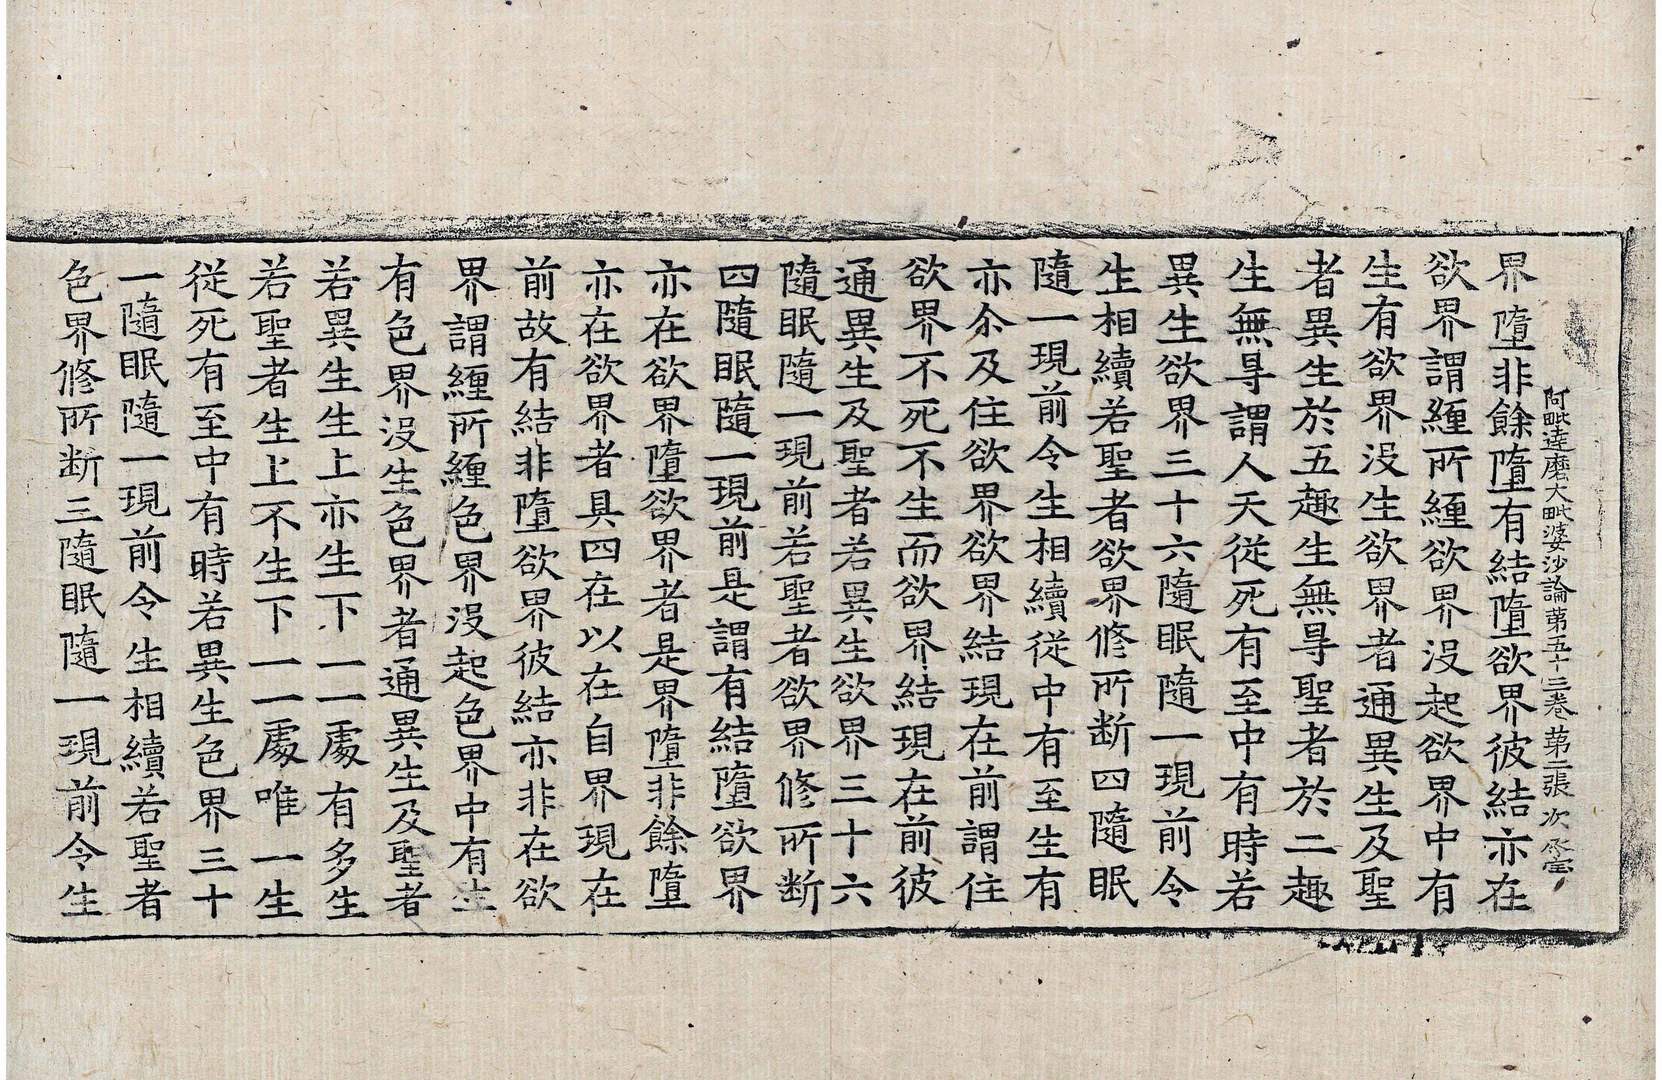 阿毗達磨大毗婆沙論第五十三卷 第二張 次
界墮非餘墮有結墮欲界彼結亦在
欲界謂纏所纏欲界没起欲界中有
生有欲界没生欲界者通異生及聖
者異生於五趣生無㝵聖者於二趣
生無㝵謂人天從死有至中有時若
異生欲界三十六隨眠隨一現前令
生相續若聖者欲界修所斷四隨眠
隨一現前令生相續從中有至生有
亦尒及住欲界欲界結現在前謂住
欲界不死不生而欲界結現在前彼
通異生及聖者若異生欲界三十六
隨眠隨一現前若聖者欲界修所斷
四隨眠隨一現前是謂有結墮欲界
亦在欲界墮欲界者是界墮非餘墮
亦在欲界者具四在以在自界現在
前故有結非墮欲界彼結亦非在欲
界謂纏所纏色界没起色界中有生
有色界没生色界者通異生及聖者
若異生生上亦生下一一處有多生
若聖者生上不生下一一處唯一生
從死有至中有時若異生色界三十
一隨眠隨一現前令生相續若聖者
色界修所斷三隨眠隨一現前令生